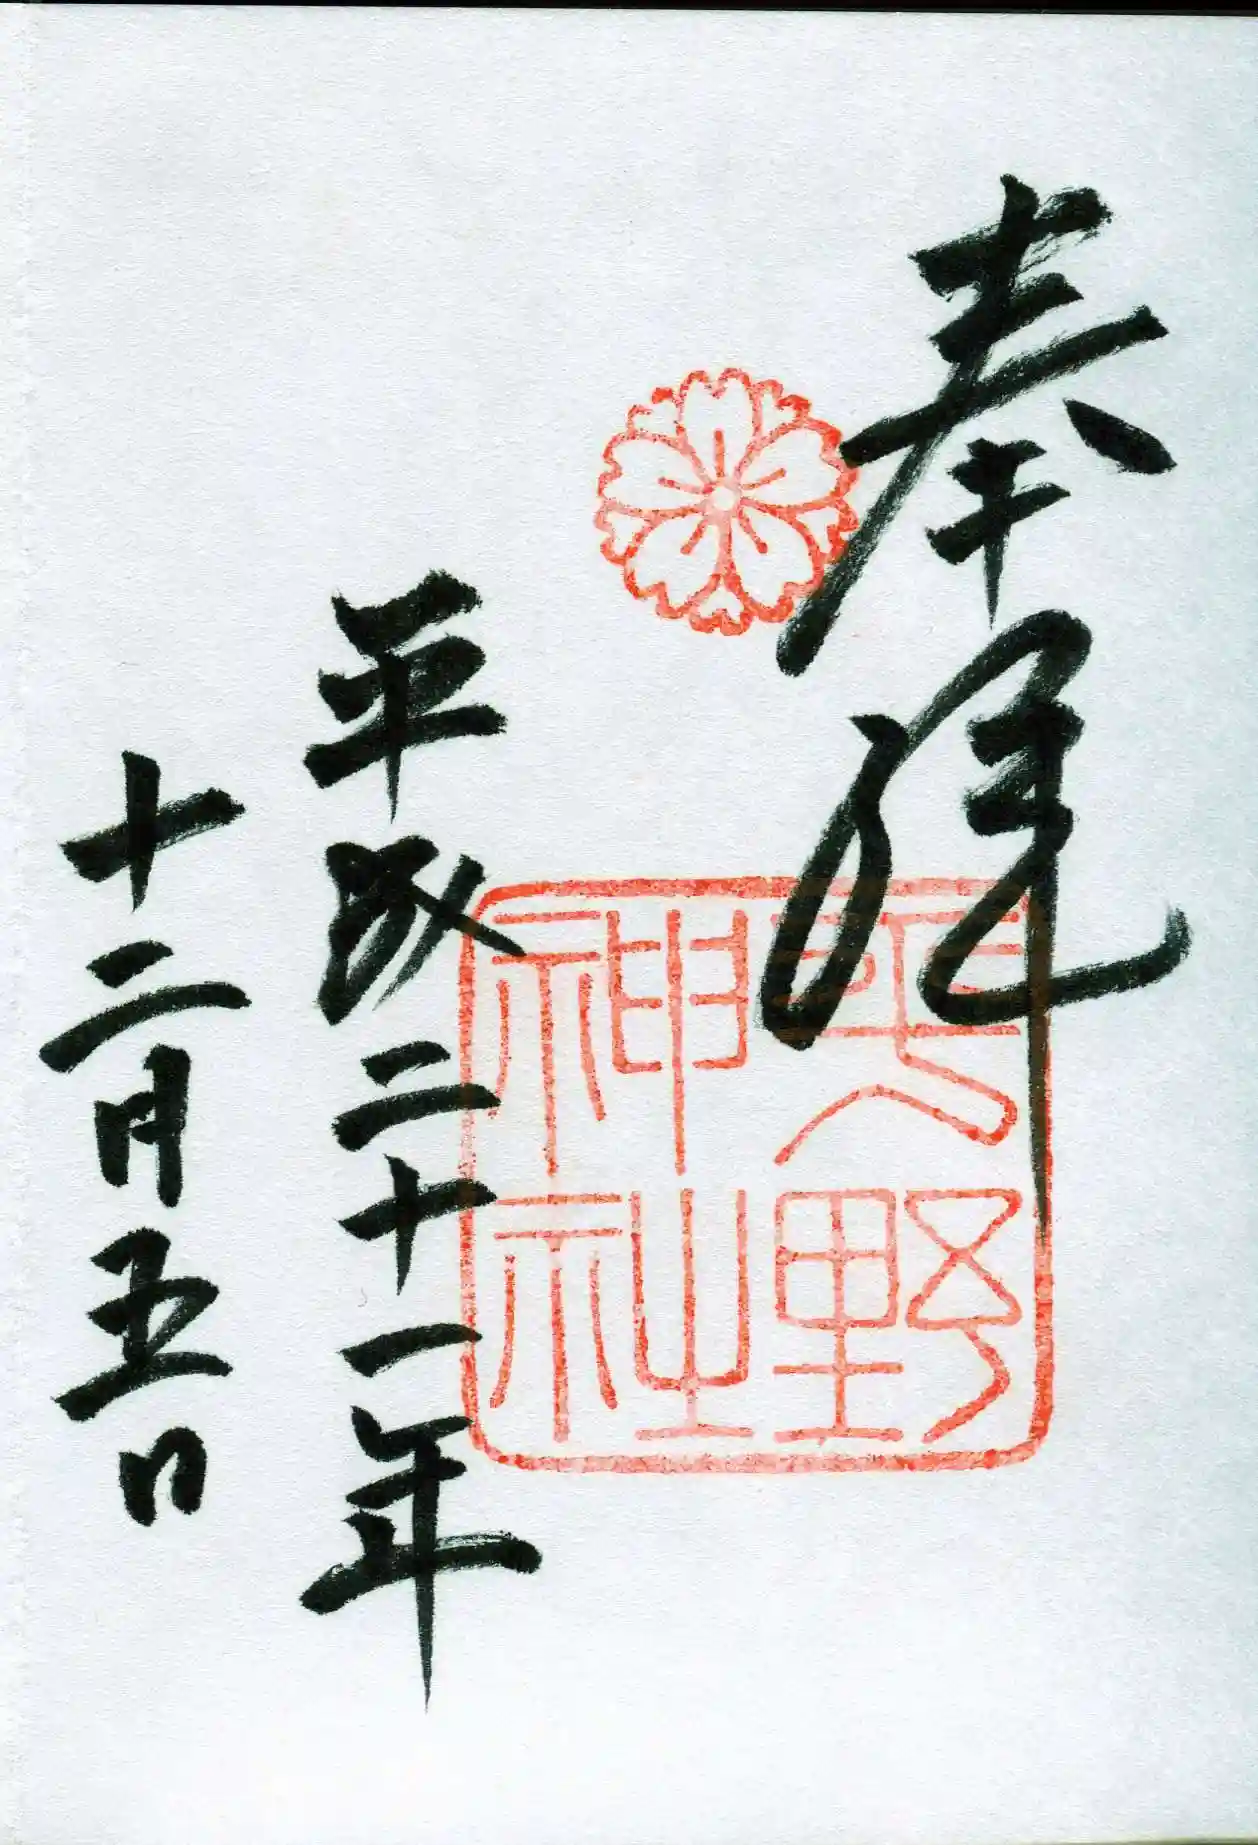 奉拝
平野
神社
平成二十一年
十二月五日